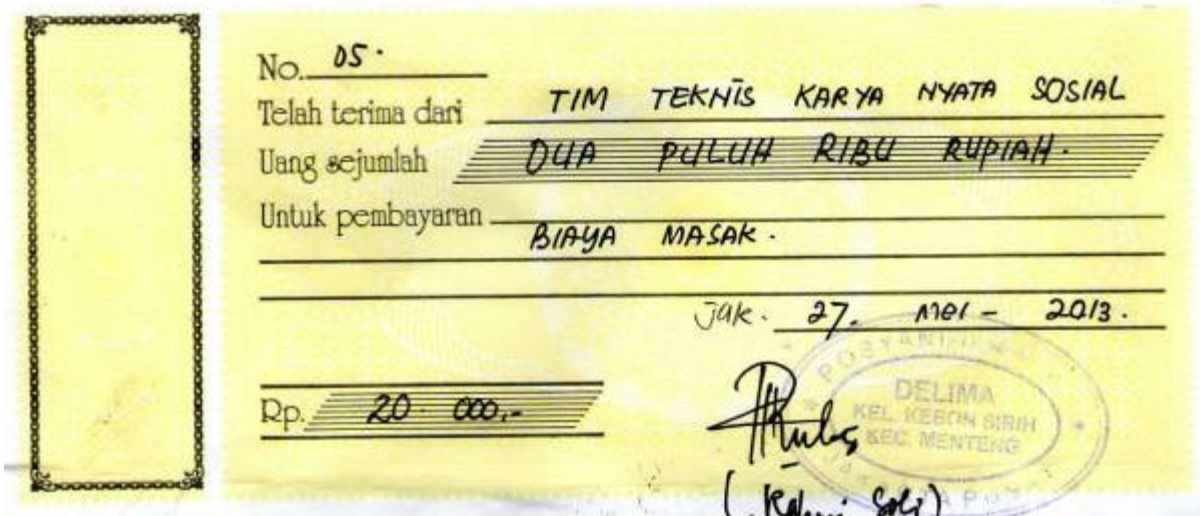 No. 05.
Telah terima dari TIM TEKNIS KARYA NYATA SOSIAL
Uang sejumlah DUA PULUH RIBU RUPIAH.
Untuk pembayaran
BIAYA MASAK.
Jak. 27. Mei - 2013.
DELIMA
KEL. KEBON SIRIH
KEC. MENTENG
Rp. 20.000,-